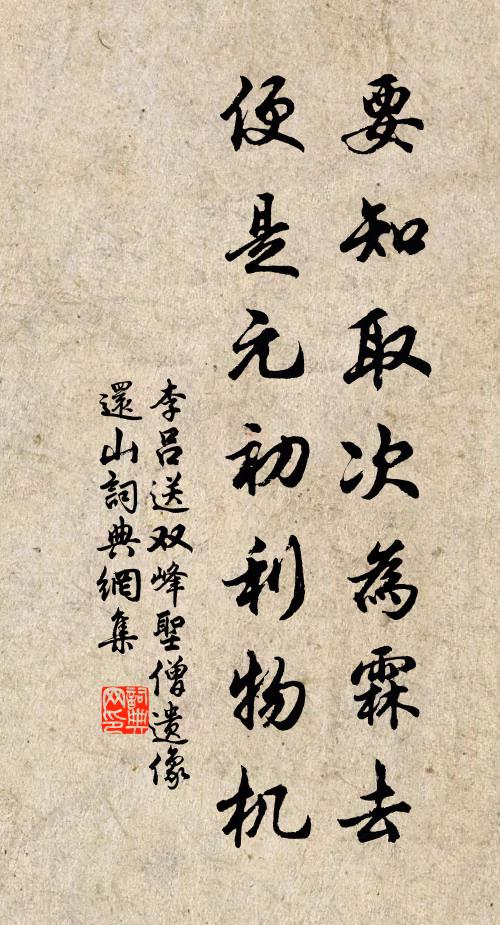 要知取次為霖去
便是元初利物机
李吕送双峰聖僧遺像
還山詞典網集
詞典
网印